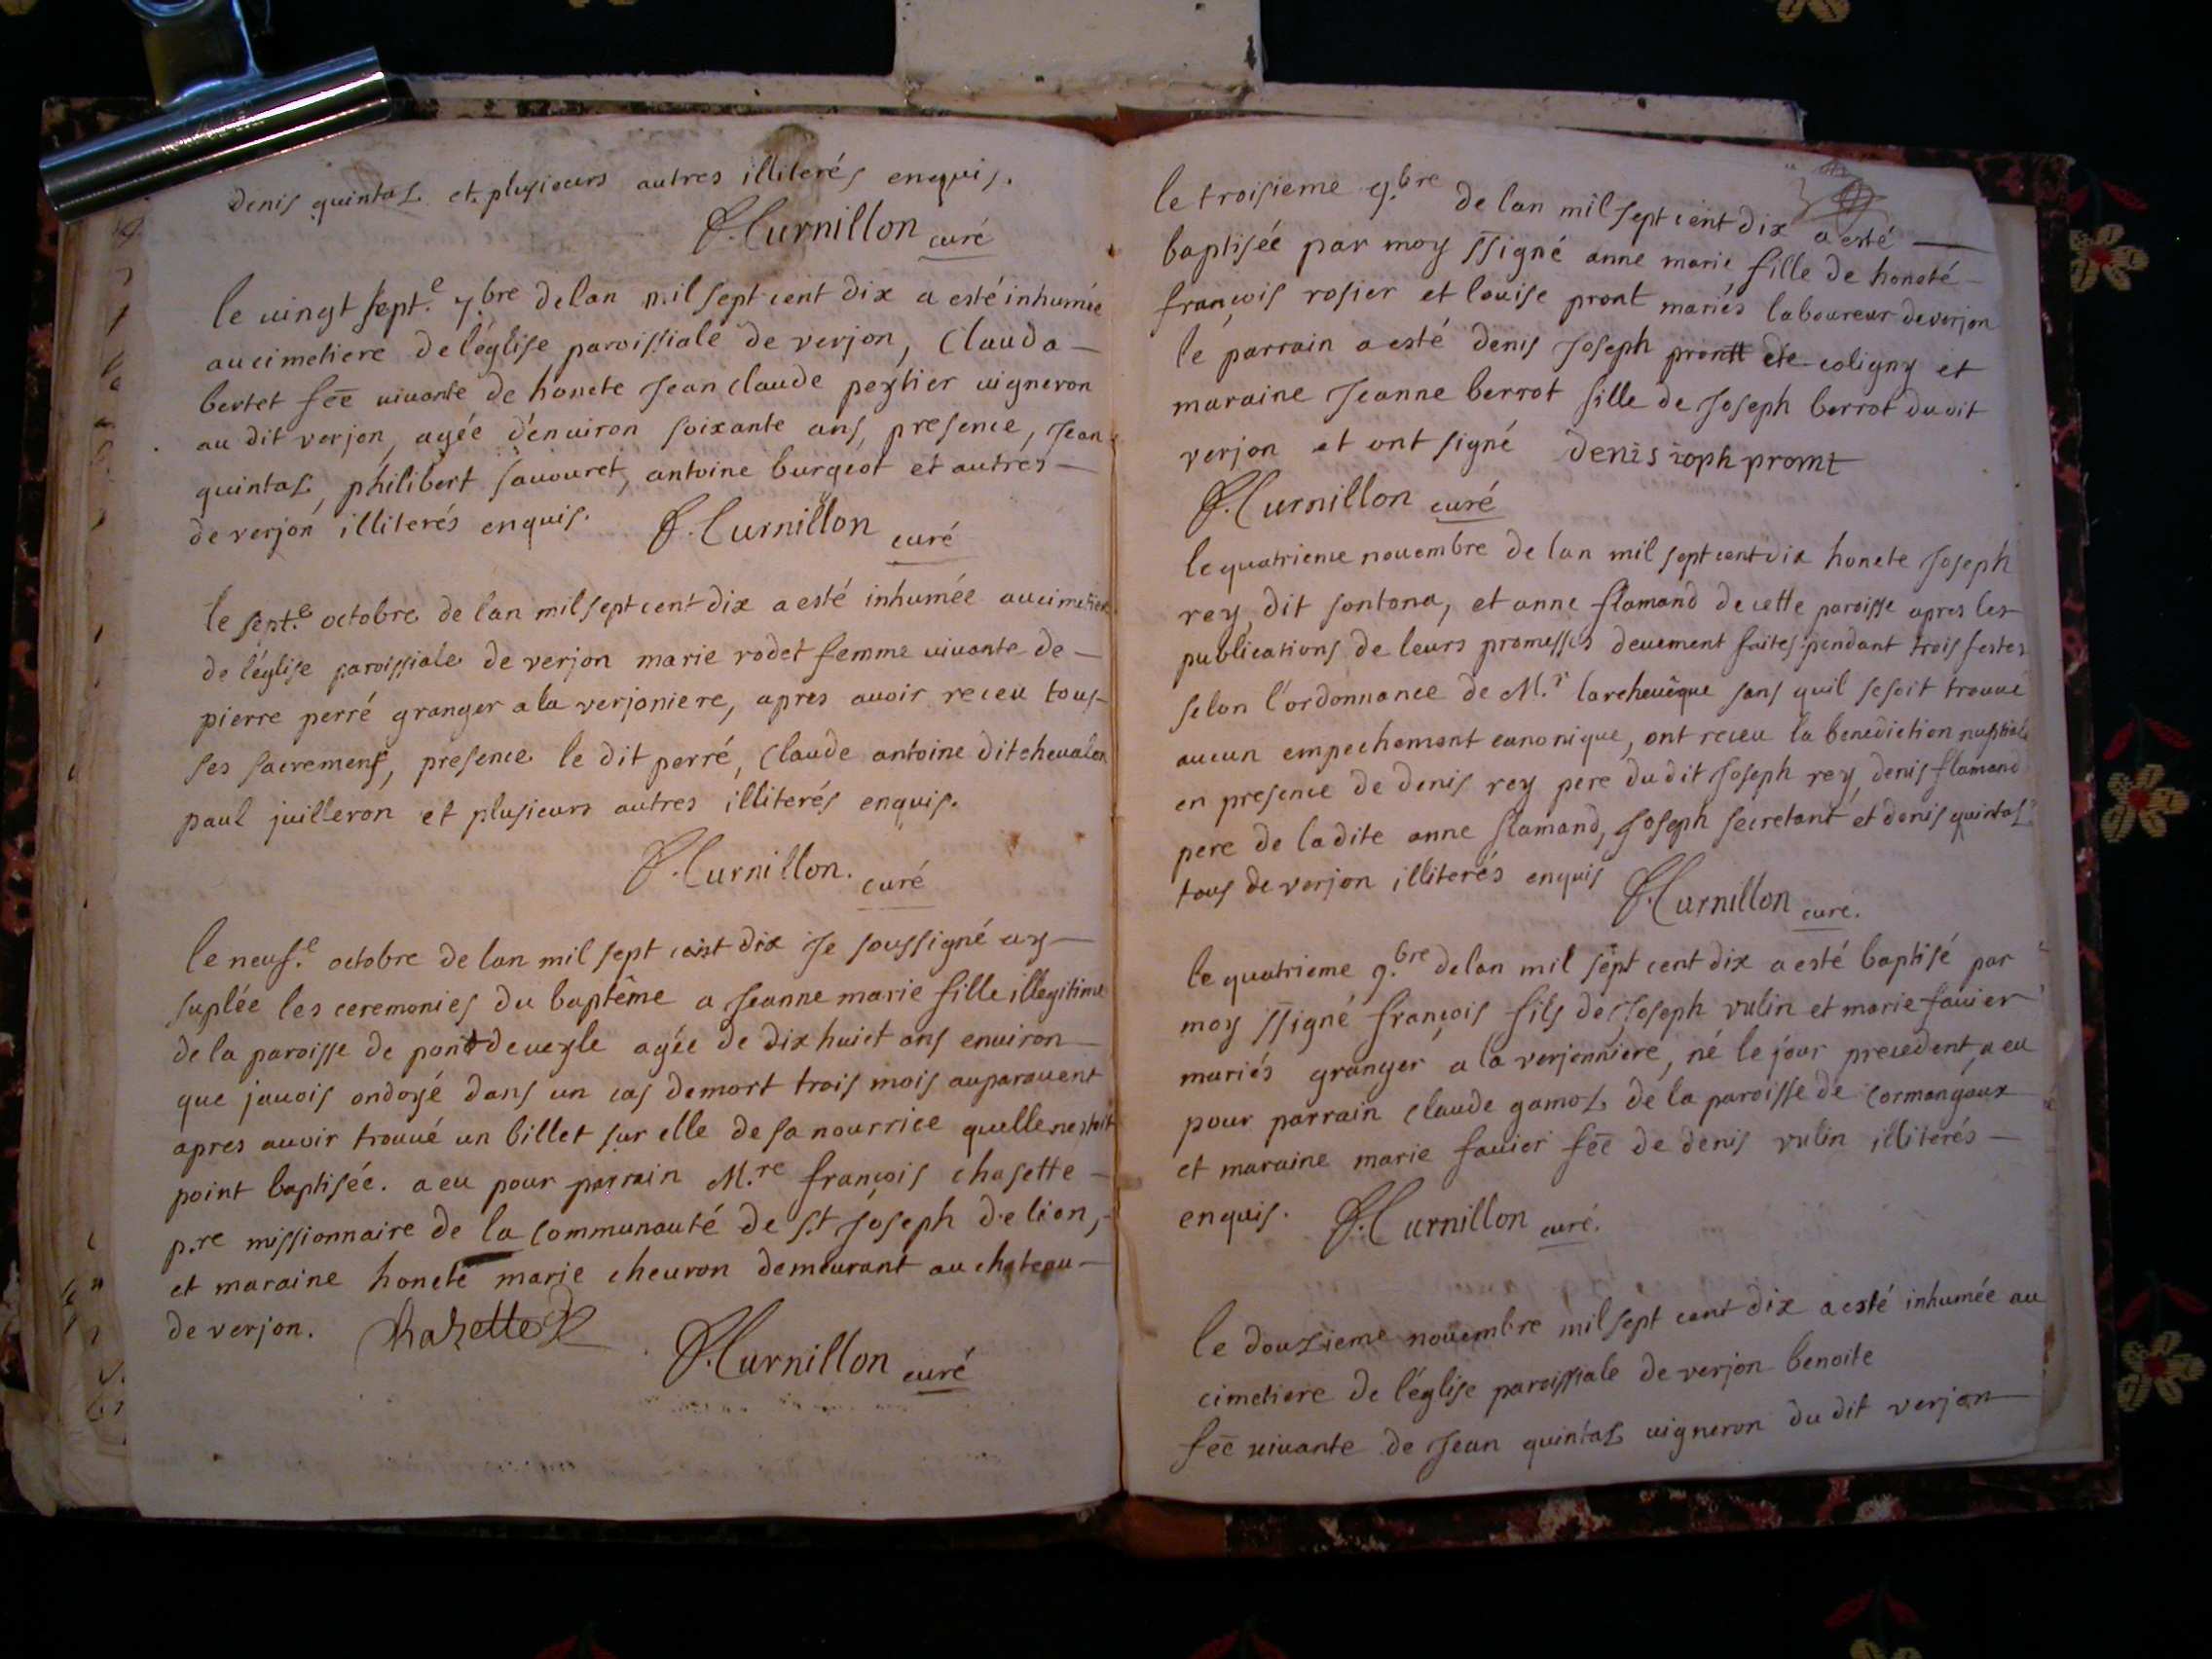 denis quintaz et plusieurs autres illiterés enquis.
P. Curnillon curé
le vingt sept.e 7.bre de lan mil sept cent dix a esté inhumée
au cimetiere de léglise paroissiale de verjon, Clauda
bertet fēē vivante de honete Jean claude peytier vigneron
au dit verjon, agée dénviron soixante ans, presence, Jean
quintaz, philibert savouret, antoine burgeot et autres
de verjon illiterés enquis. P. Curnillon curé
le sept.e octobre de lan mil sept cent dix a esté inhumée au cimetiere
de léglise paroissiale de verjon marie rodet femme vivante de
pierre perré granger a la verjoniere, apres avoir receu tous
ses sacremens, presence le dit perré, Claude antoine dit chevalon
paul juilleron et plusieurs autres illiterés enquis.
P. Curnillon. curé
le neuf.e octobre de lan mil sept cent dix Je soussigné ay
suplée les ceremonies du baptême a Jeanne marie fille illegitime
de la paroisse de pont de veyle agée de dix huict ans environ
que javois ondoyé dans un cas de mort trois mois auparavent
apres avoir trouvé un billet sur elle de sa nourrice quelle nestoit
point baptisée. a eu pour parrain M.re françois chasette
p.re missionnaire de la communauté de s.t Joseph de lion,
et maraine honete marie chevron demeurant au chateau
de verjon. Chazette P. Curnillon curé
le troisieme 9.bre de lan mil sept cent dix a esté
baptisée par moy ssigné anne marie fille de honeté
françois rosier et louise pront mariés laboureur de verjon
le parrain a esté denis Joseph pront de coligny et
maraine Jeanne berrot fille de Joseph berrot du dit
verjon et ont signé denis ioph promt
P. Curnillon curé
le quatrieme novembre de lan mil sept cent dix honete Joseph
rey, dit sontona, et anne flamand de cette paroisse apres les
publications de leurs promesses devement faites pendant trois festes
selon l'ordonnance de M.r larchevêque sans quil se soit trouvé
aucun empechement canonique, ont receu la benediction nuptiale
en presence de denis rey pere du dit Joseph rey, denis flamand
pere de la dite anne flamand, Joseph secretant et denis quintaz
tous de verjon illiterés enquis P. Curnillon curé.
le quatrieme 9.bre de lan mil sept cent dix a esté baptisé par
moy ssigné françois fils de Joseph vulin et marie favier
mariés granger a la verjonniere, né le jour precedent, a eu
pour parrain claude gamoz de la paroisse de cormangoux
et maraine marie favier fēē de denis vulin illiterés
enquis. P. Curnillon curé.
le douzieme novembre mil sept cent dix a esté inhumée au
cimetiere de léglise paroissiale de verjon benoite
fēē vivante de Jean quintaz vigneron du dit verjon